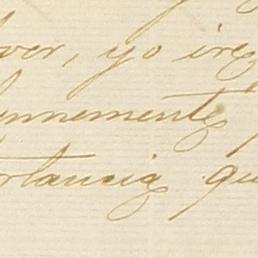 ver, yo ire
nnemente
rtancia qu